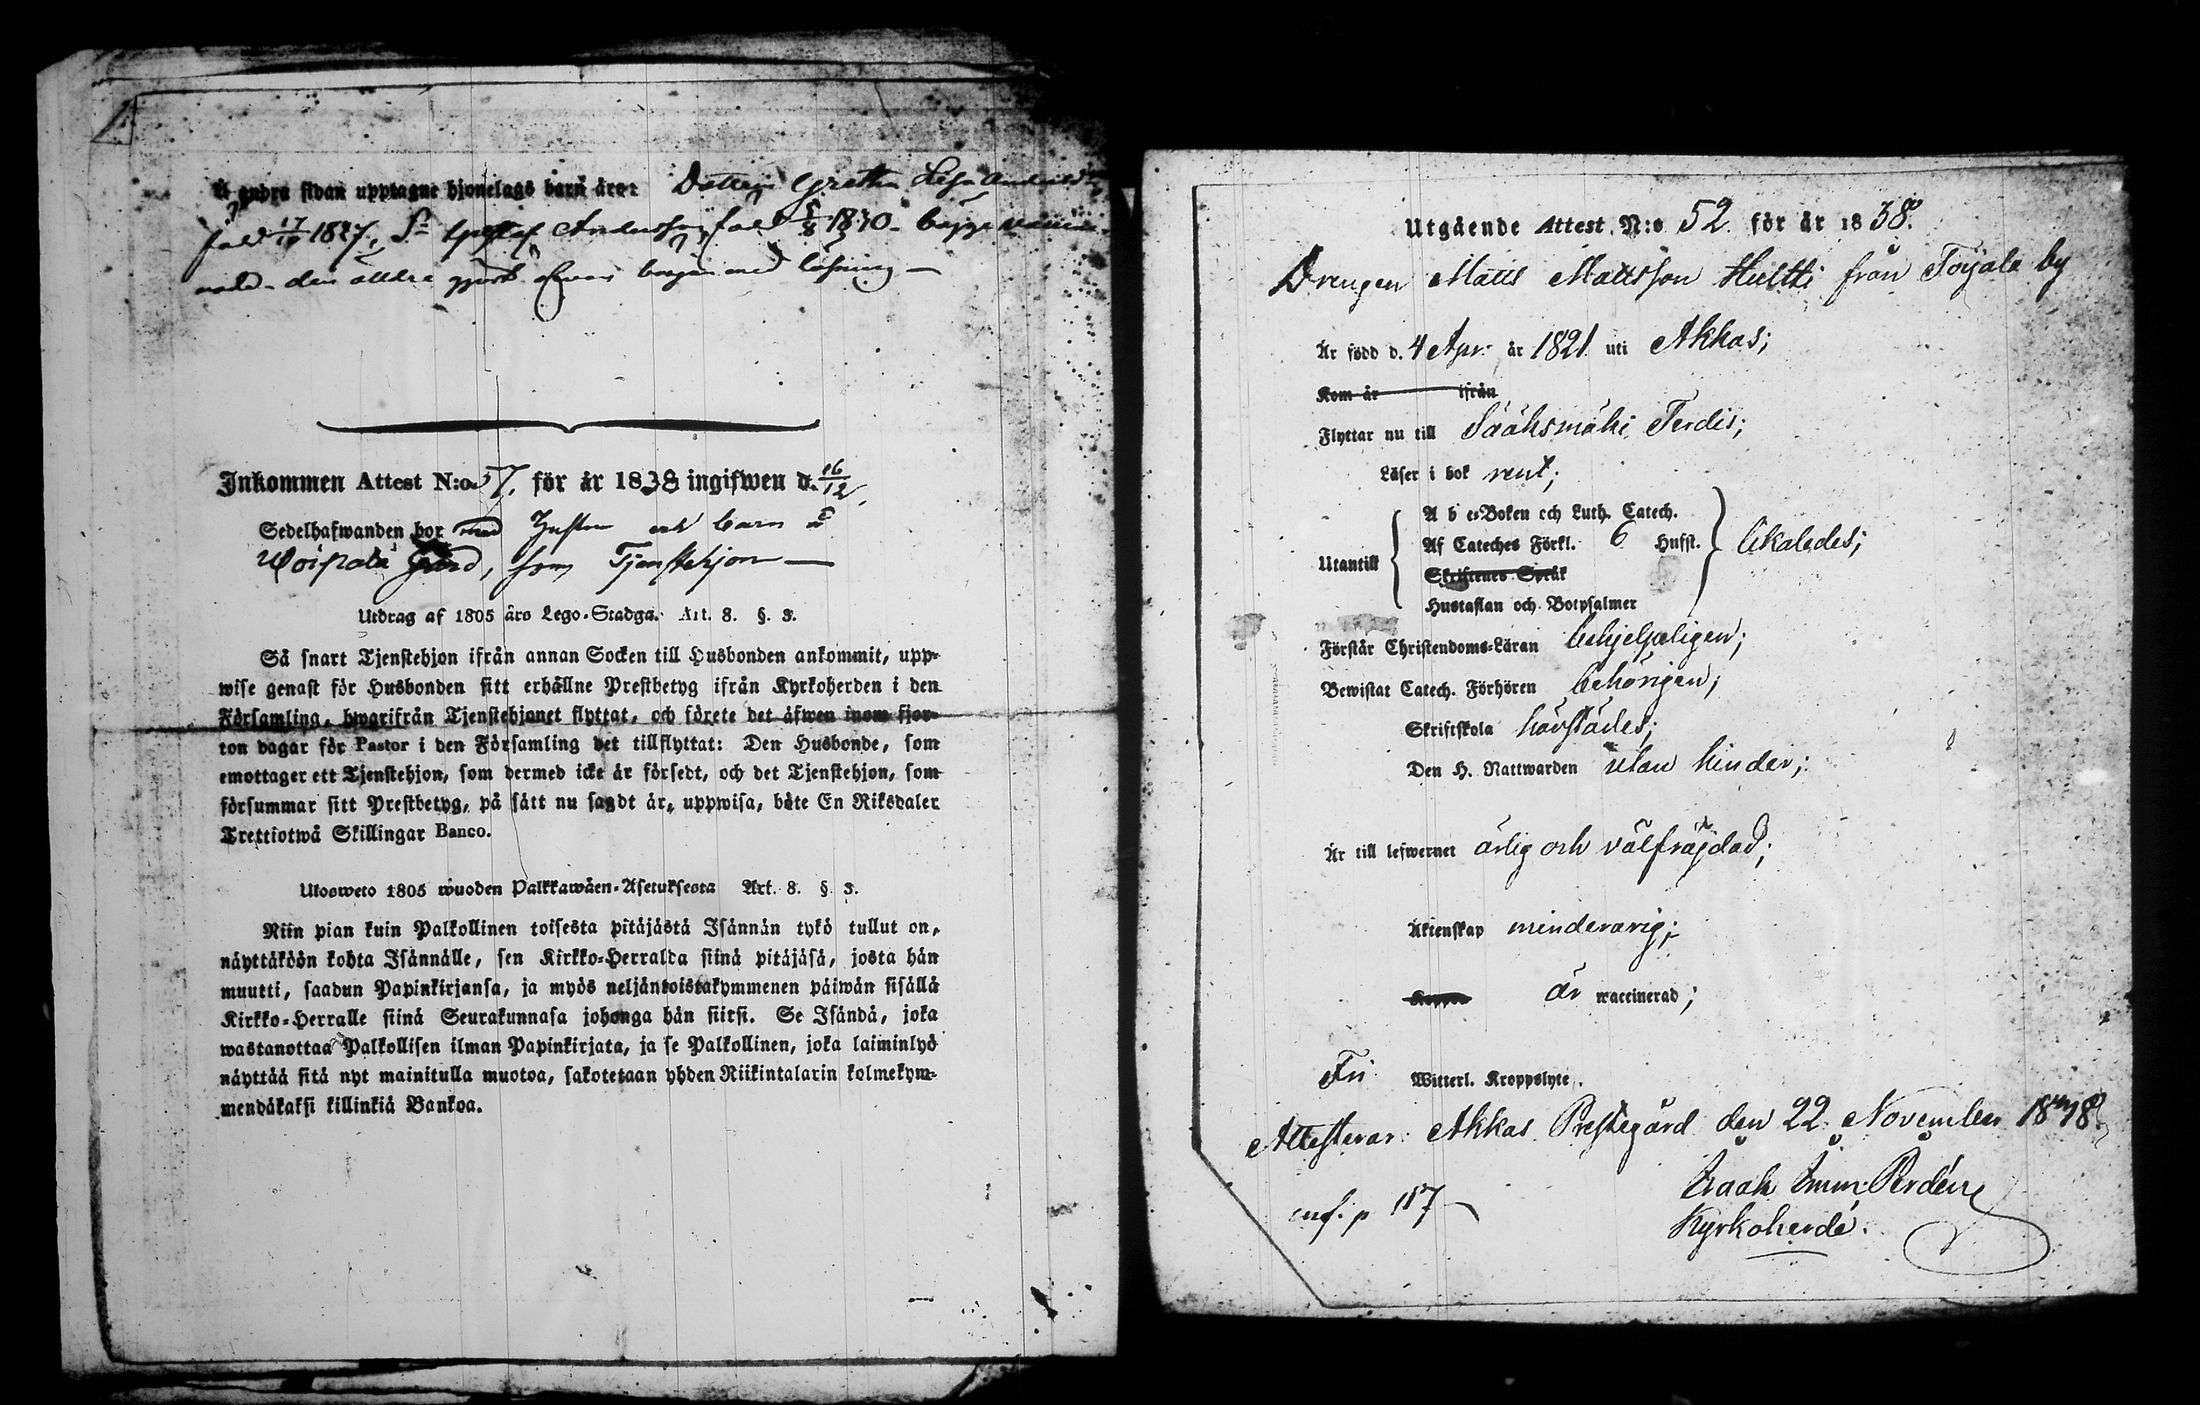 Å andra sidan upptagne hjonelags barn äro: Dottern Gretha Lisa
född 17/10 1827, Sn Gustaf Andersson född 5/8 1830. bägge
den äldre gjort början med läsning —
Inkommen Attest N:o 57. för år 1838 ingifwen d. 16/12.
Sedelhafwanden bor med Hustru och barn å
Woipala gård, som Tjenstehjon —
Utdrag af 1805 års Lego-Stadga. Art. 8. §. 3.
Så snart Tjenstehjon ifrån annan Socken till Husbonden ankommit, upp-
wise genast för Husbonden sitt erhållne Prestbetyg ifrån Kyrkoherden i den
Församling, hwarifrån Tjenstehjonet flyttat, och förete det äfwen inom fjor-
ton dagar för Pastor i den Församling det tillflyttat: Den Husbonde, som
emottager ett Tjenstehjon, som dermed icke är försedt, och det Tjenstehjon, som
försummar sitt Prestbetyg, på sätt nu sagdt är, uppwisa, böte En Riksdaler
Trettiotwå Skillingar Banco.
Ulosweto 1805 wuoden Palkkawäen-Asetuksesta Art. 8. §. 3.
Niin pian kuin Palkollinen toisesta pitäjästä Isännän tykö tullut on,
näyttäköön kohta Isännälle, sen Kirkko-Herralda siinä pitäjäsä, josta hän
muutti, saadun Papinkirjansa, ja myös neljäntoistakymmenen päiwän sisällä
Kirkko-Herralle siinä Seurakunnasa johonga hän siirsi. Se Isändä, joka
wastanottaa Palkollisen ilman Papinkirjata, ja se Palkollinen, joka laiminlyö
näyttää sitä nyt mainitulla muotoa, sakotetaan yhden Riikintalarin kolmekym-
mendäkaksi killinkiä Bankoa.
Utgående Attest N:o 52 för år 1838.
Drengen Matts Mattsson Hultti från Toijala by
Är född d. 4 Apr. år 1821 uti Akkas;
Kom år ifrån
Flyttar nu till Sääksmäki Ferdis;
Läser i bok rent;
A b c-Boken och Luth. Catech.
Utantill Af Cateches Förkl. 6 Hufst. likaledes;
Skriftenes Språk
Hustaflan och Botpsalmer
Förstår Christendoms-Läran behjelpeligen;
Bewistat Catech. Förhören behörigen;
Skriftskola härstädes;
Den H. Nattwarden utan hinder;
Är till lefwernet ärlig och välfräjdad;
Äktenskap minderårig;
Koppor är waccinerad;
Fri Witterl. Kroppslyte.
Attesterar Akkas Prestegård den 22 November 1838.
Isaak Imm: Perdén
Kyrkoherde.
inf. p 117